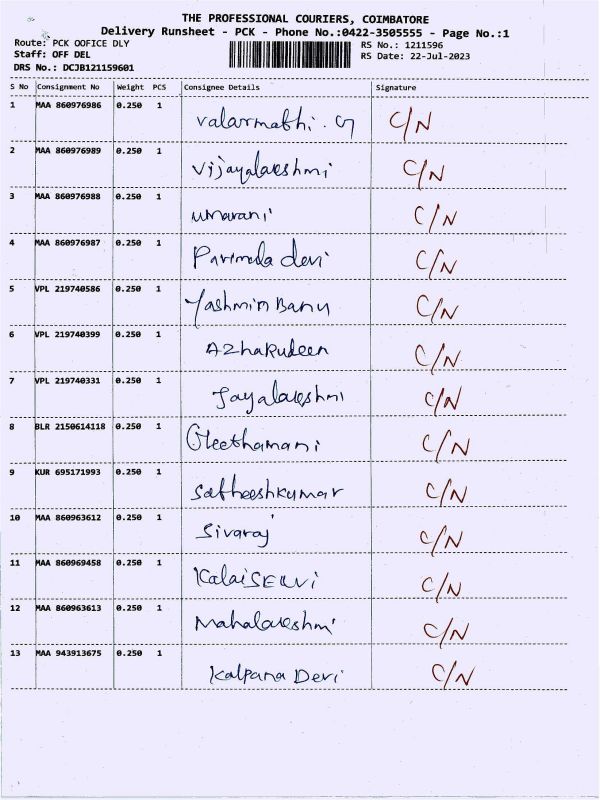 THE PROFESSIONAL COURIERS, COIMBATORE
Delivery Runsheet - PCK - Phone No.:0422-3505555 - Page No.:1
Route: PCK OOFICE DLY RS No.: 1211596
Staff: OFF DEL RS Date: 22-Jul-2023
DRS No.: DCJB121159601
S No Consignment No Weight PCS Consignee Details Signature
1 MAA 860976986 0.250 1 Valarmathi. G C/N
2 MAA 860976989 0.250 1 Vijayalakshmi C/N
3 MAA 860976988 0.250 1 umarani C/N
4 MAA 860976987 0.250 1 Parimala devi C/N
5 VPL 219740586 0.250 1 Yashmin Banu C/N
6 VPL 219740399 0.250 1 Azhakudeen C/N
7 VPL 219740331 0.250 1 Jayalakshmi C/N
8 BLR 2150614118 0.250 1 Geethamani C/N
9 KUR 695171993 0.250 1 Satheeshkumar C/N
10 MAA 860963612 0.250 1 Sivaraj C/N
11 MAA 860969458 0.250 1 KalaiSelvi C/N
12 MAA 860963613 0.250 1 Mahalakshmi C/N
13 MAA 943913675 0.250 1 Kalpana Devi C/N